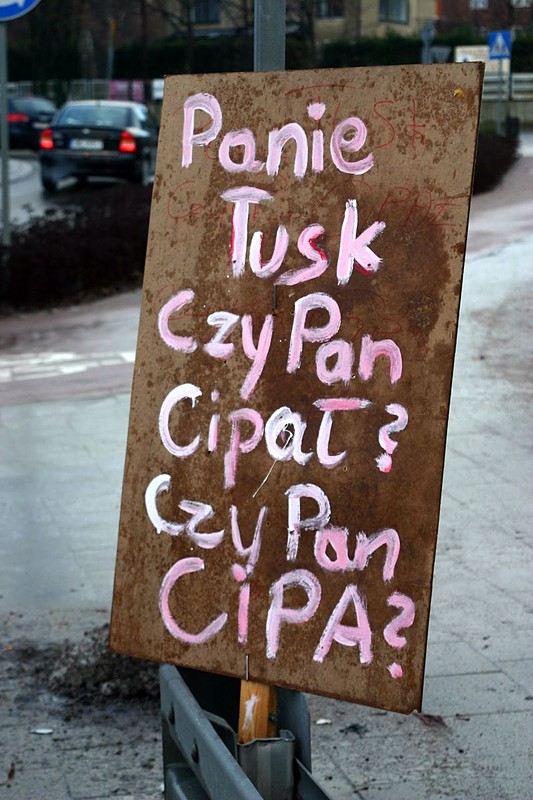 Panie
Tusk
Czy Pan
Cipał?
Czy Pan
CiPA?